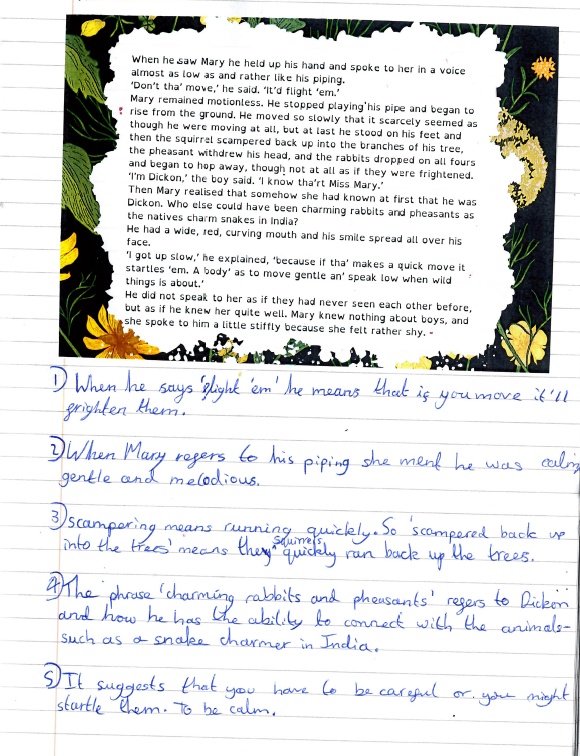 When he saw Mary he held up his hand and spoke to her in a voice
almost as low as and rather like his piping.
'Don't tha' move,' he said. 'It'd flight 'em.'
Mary remained motionless. He stopped playing his pipe and began to
rise from the ground. He moved so slowly that it scarcely seemed as
though he were moving at all, but at last he stood on his feet and
then the squirrel scampered back up into the branches of his tree,
the pheasant withdrew his head, and the rabbits dropped on all fours
and began to hop away, though not at all as if they were frightened.
'I'm Dickon,' the boy said. 'I know tha'rt Miss Mary.'
Then Mary realised that somehow she had known at first that he was
Dickon. Who else could have been charming rabbits and pheasants as
the natives charm snakes in India?
He had a wide, red, curving mouth and his smile spread all over his
face.
'I got up slow,' he explained, 'because if tha' makes a quick move it
startles 'em. A body' as to move gentle an' speak low when wild
things is about.'
He did not speak to her as if they had never seen each other before,
but as if he knew her quite well. Mary knew nothing about boys, and
she spoke to him a little stiffly because she felt rather shy.
1) When he says 'flight 'em' he means that if you move it'll
frighten them.
2) When Mary refers to his piping she ment he was calm,
gentle and melodious.
3) scampering means running quickly. So 'scampered back up
into the trees' means they squirrels quickly ran back up the trees.
4) The phrase 'charming rabbits and pheasants' refers to Dickon
and how he has the ability to connect with the animals-
such as a snake charmer in India.
5) It suggests that you have to be careful or you might
startle them. To be calm.